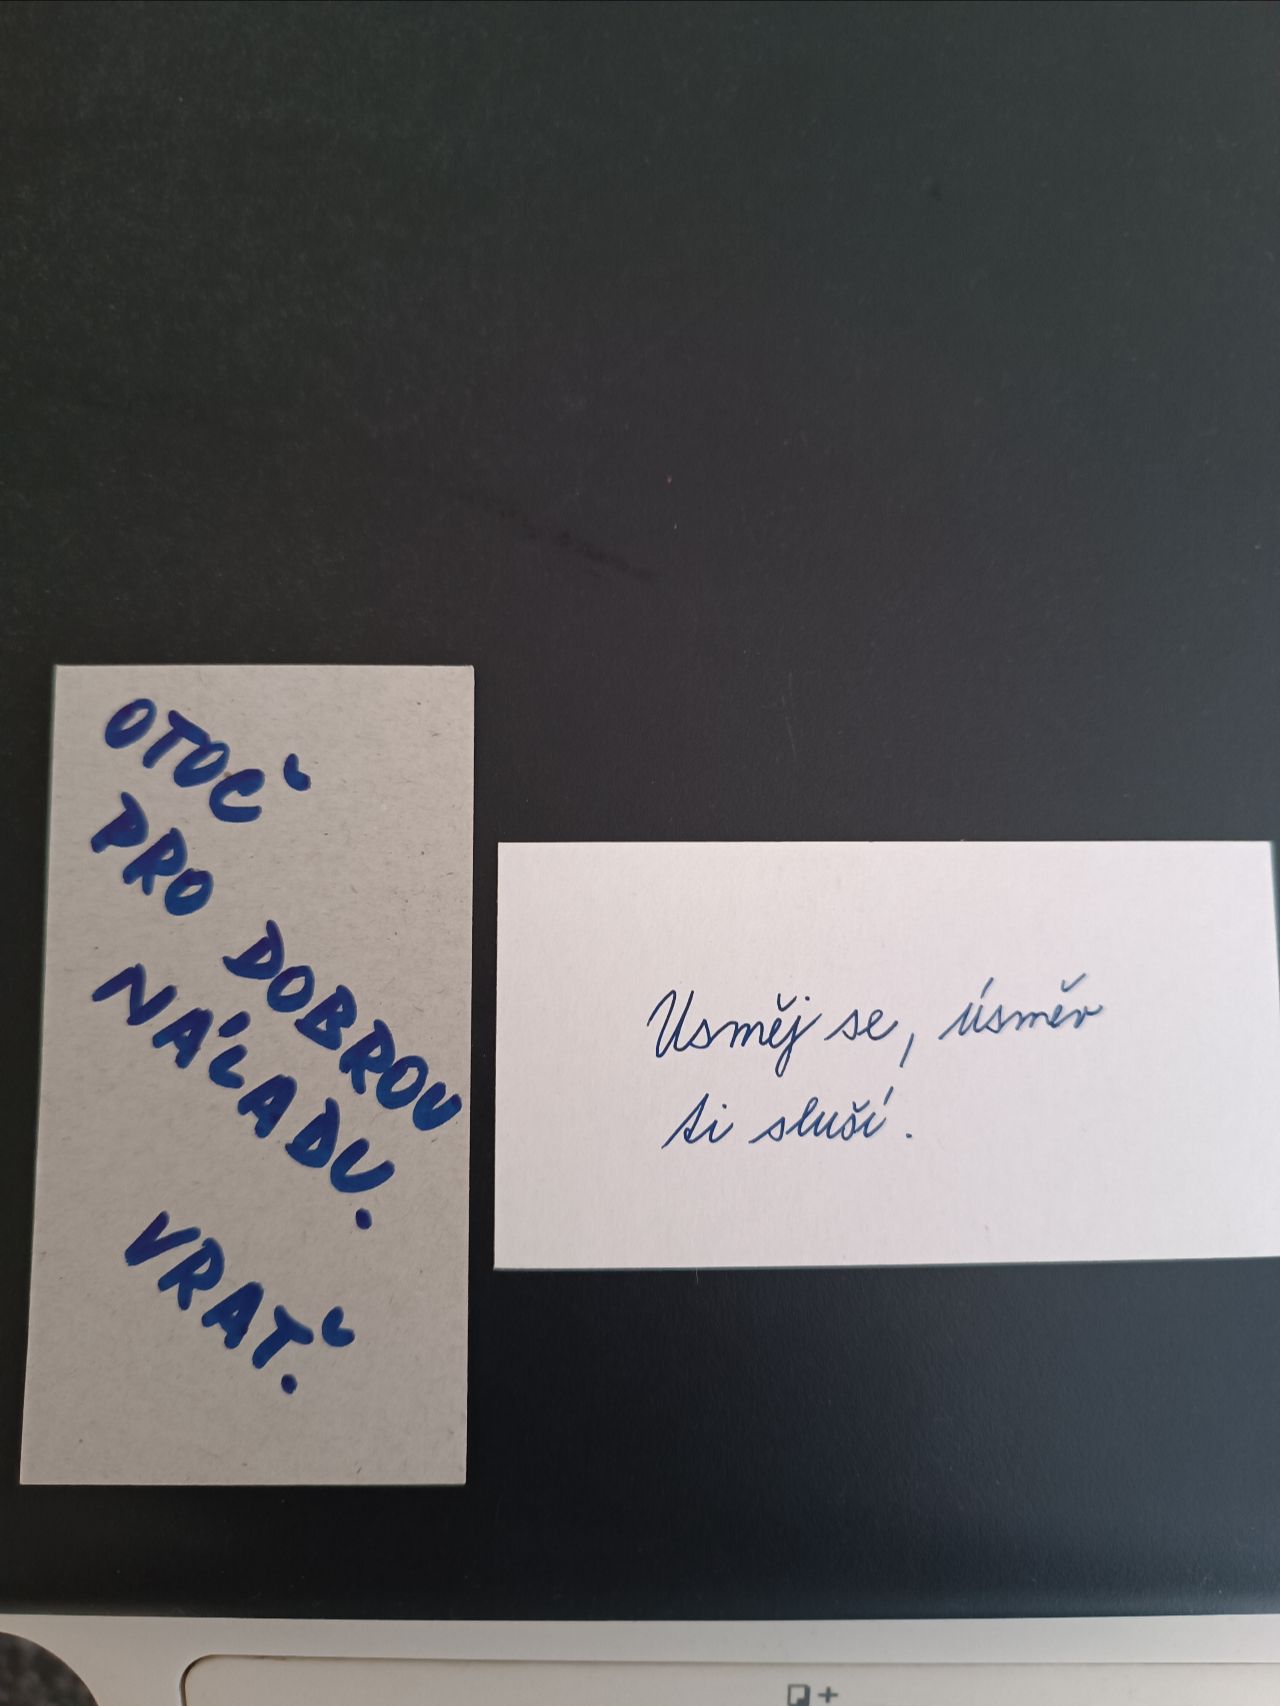 OTOČ
PRO DOBROU
NÁLADU.
VRAŤ.
Usměj se, úsměv
ti sluší.